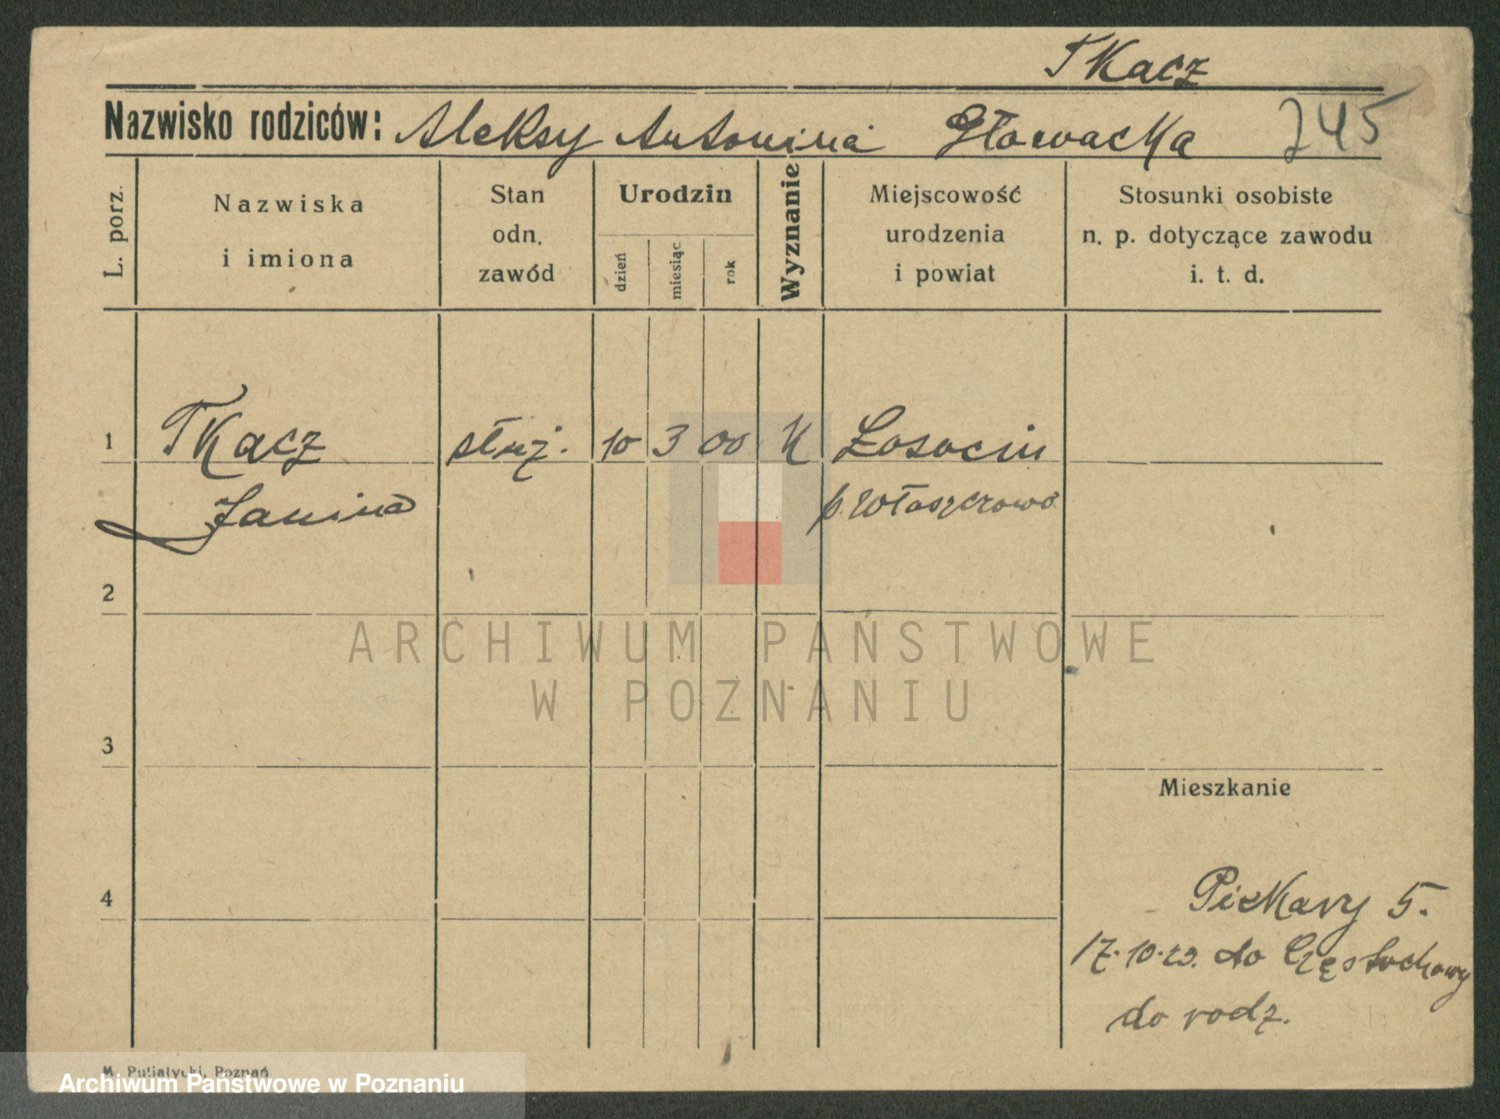 Tkacz
Nazwisko rodziców: Aleksy Antonina Głowacka 245
L. porz.
Nazwiska
i imiona
Stan
odn.
zawód
Urodzin
dzień
miesiąc
rok
Wyznanie
Miejscowość
urodzenia
i powiat
Stosunki osobiste
n. p. dotyczące zawodu
i. t. d.
1 Tkacz służ. 10 3 00 K Łosocin
Janina p. Włoszczowa
2
3
4
Mieszkanie
Piekary 5.
17.10.29. do Częstochowy
do rodz.
ARCHIWUM PAŃSTWOWE
W POZNANIU
M. Putiatycki, Poznań
Archiwum Państwowe w Poznaniu